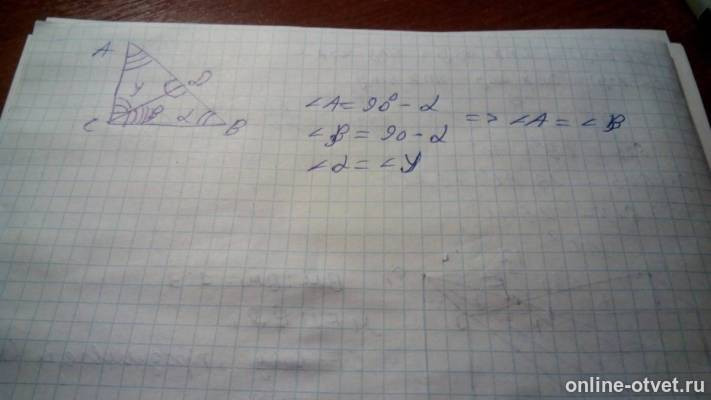 A
γ
D
C
β
α
B
∠A = 90° - α
∠β = 90 - α
=> ∠A = ∠β
∠α = ∠γ
online-otvet.ru